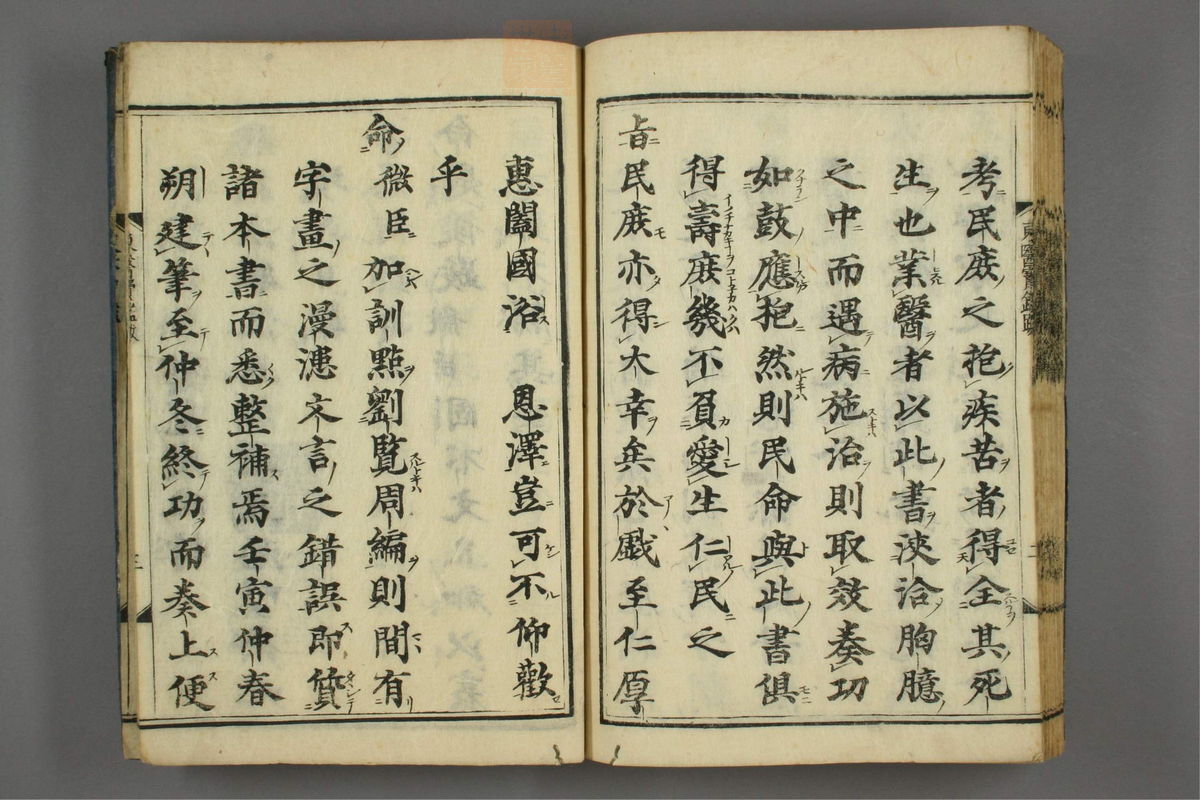 考民庻之抱疾苦者得全其死
生也業醫者以此書浹洽胸臆
之中而遇病施治則取效奏功
如鼓應抱然則民命與此書俱
得壽庻幾不負愛生仁民之
上旨民庻亦得大幸矣於戲至仁厚
惠闔國浴　恩澤豈可不仰歡
乎
命微臣加訓點劉覧周編則間有
字畫之漫漶文言之錯誤即質
諸本書而悉整補焉壬寅仲春
朔建筆至仲冬終功而奏上便